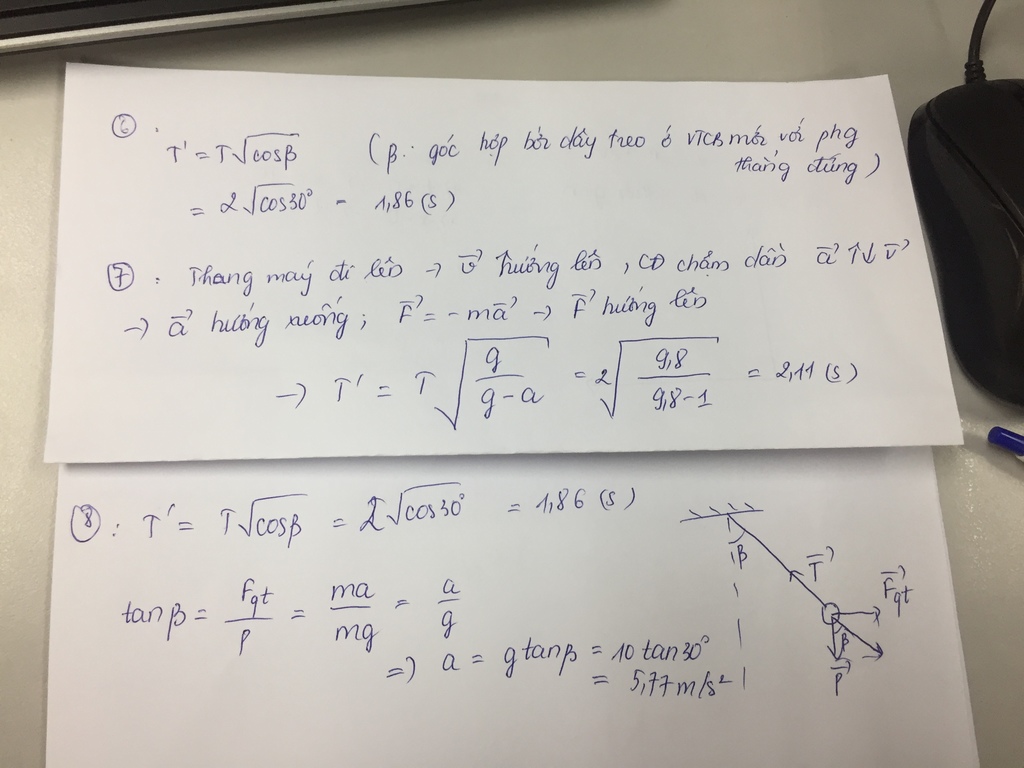 ⑥: T' = T√cosβ (β: góc hợp bởi dây treo ở VTCB mới với phg
thẳng đứng)
= 2√cos30° = 1,86 (s)
⑦: Thang máy đi lên → v⃗ hướng lên, CĐ chậm dần a⃗ ↑↓ v⃗
→ a⃗ hướng xuống; F⃗ = -ma⃗ → F⃗ hướng lên
→ T' = T√(g/(g-a)) = 2√(9,8/(9,8-1)) = 2,11 (s)
⑧: T' = T√cosβ = 2√cos30° = 1,86 (s)
tanβ = Fqt/P = ma/mg = a/g
=> a = gtanβ = 10tan30°
= 5,77 m/s²
β
T⃗
β
P⃗
F⃗qt